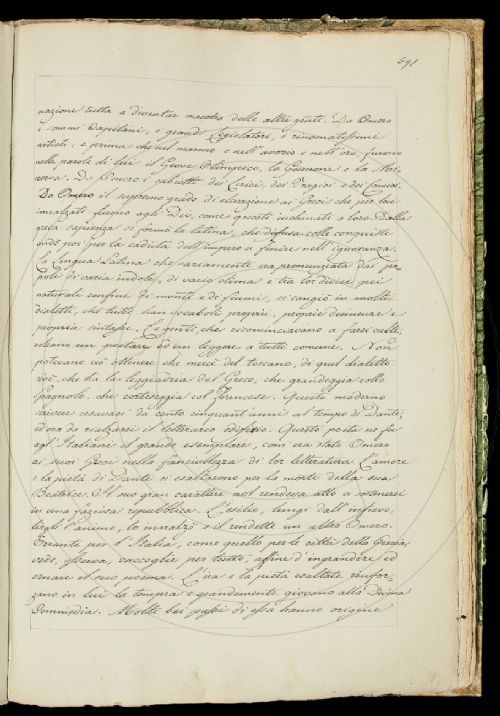 591
nazione tutta a diventar maestra delle altre genti. Da Omero
i sommi Capitani, i grandi Legislatori, i rinomatissimi
artisti, e prima che nel marmo e nell'avorio e nell'oro, furono
nelle parole di lui il Giove Olimpico, la Giunone e la Mi-
nerva. Da Omero i subietti dei Lirici, dei Tragici e dei Comici.
Da Omero il supremo grado di elevazione ai Greci che per lui
innalzati furono agli Dei, come questi inchinati a loro. Dalla
greca sapienza si formò la latina, che diffusa colle conquiste
andò poi per la caduta dell'impero a finire nell'ignoranza.
La lingua Latina che variamente era pronunziata dai po-
poli di varia indole, di vario clima e tra lor divisi pei
naturali confini di monti e di fiumi, si cangiò in molti
dialetti, che tutti han vocaboli proprii, proprie desinenze e
propria sintassi. Le genti, che ricominciavano a farsi culte,
volevano un parlare ed un leggere a tutti comune. Non
potevano ciò ottenere che mercè del toscano, di quel dialetto
cioè, che ha la leggiadria del Greco, che grandeggia collo
Spagnolo, che corteseggia col Francese. Questo moderno
scrivere usavasi da cento cinquant'anni al tempo di Dante,
ed ora da rialzarsi il letterario edifizio. Questo poeta ne fu
agl'Italiani il grande esemplare, com'era stato Omero
ai suoi Greci nella fanciullezza di lor letteratura. L'amore
e la pietà di Dante si esaltarono per la morte della sua
Beatrice. Il suo gran carattere nol rendeva atto a sostenersi
in una faziosa repubblica. L'esilio, lungi dall'infievo-
lirgli l'animo, lo innalzò e il rendette un altro Omero.
Errante per l'Italia, come quello per le città della Grecia
vede, osserva, raccoglie per tutto, affine d'ingrandire ed
ornare il suo poema. L'ira e la pietà esaltate rinfor-
zano in lui la tempra e grandemente giovano alla Divina
Commedia. Molti bei passi di essa hanno origine